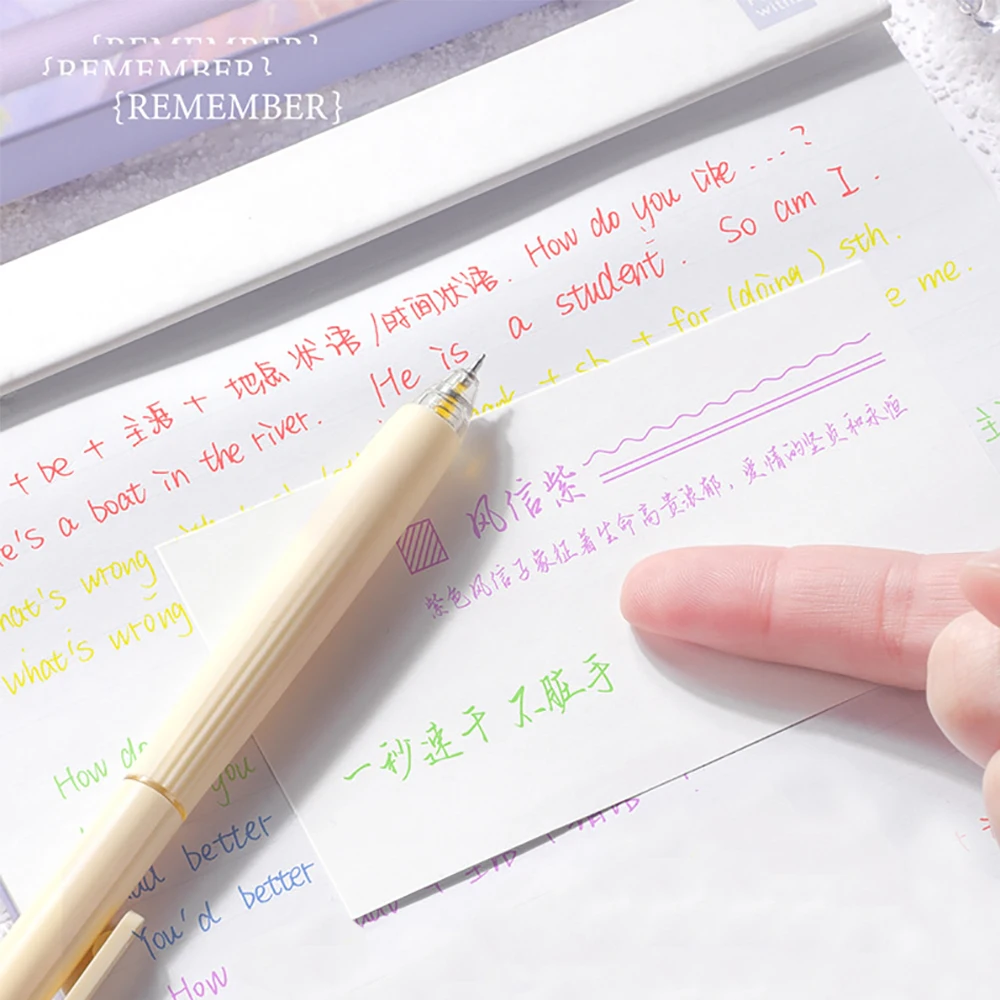 {REMEMBER}
{REMEMBER}
{REMEMBER}
How do you like ....?
+ be + 主语 + 地点状语/时间状语.
He is a student. So am I.
e's a boat in the river.
+ for (doing) sth.
e me.
hat's wrong
what's wrong
风信紫
紫色风信子象征着生命高贵浓郁，爱情的坚贞和永恒
一秒速干 不脏手
How do you
better
You'd better
How